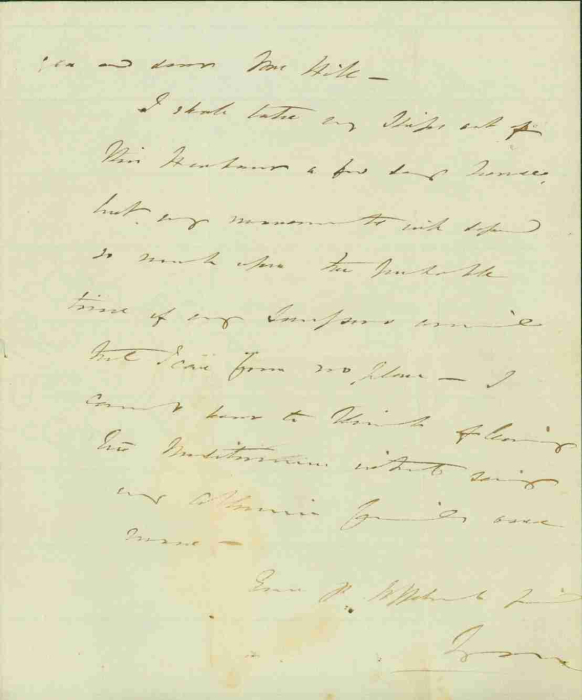 you and dear Mrs Hill —
I shall take my Ships out of
this Harbour a few days hence,
but my movements will depend
so much upon the probable
time of my Successors arrival
that I can form no plan — I
cannot bear to think of leaving
the Mediterranean without seeing
my Athenian friends once
more —